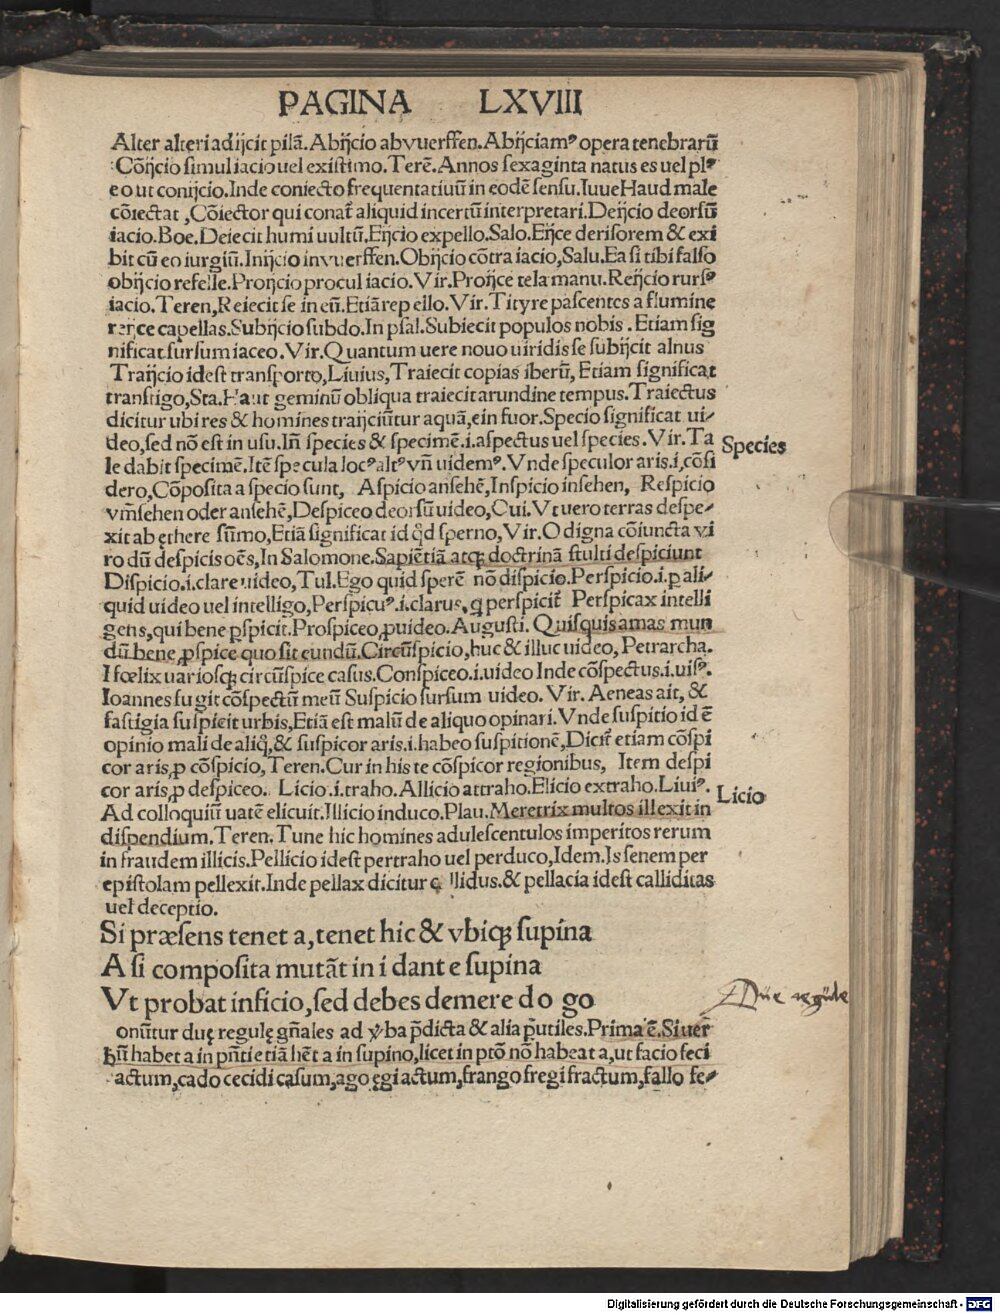 PAGINA LXVIII
Alter alteri adijcit pilā. Abijcio abvuerffen. Abijciamꝰ opera tenebrarū
Cōijcio simul iacio uel existimo. Terē. Annos sexaginta natus es uel plꝰ
eo ut conijcio. Inde coniecto frequentatiuū in eodē sensu. Iuue Haud male
cōiectat, Cōiector qui conat̄ aliquid incertū interpretari. Deijcio deorsū
iacio. Boe. Deiecit humi uultū. Eijcio expello. Salo. Eijce derisorem & exi
bit cū eo iurgiū. Inijcio invuerffen. Obijcio cōtra iacio, Salu. Ea si tibi falso
obijcio refelle. Proijcio procul iacio. Vir. Proijce tela manu. Reijcio rursꝰ
iacio. Teren, Reiecit se in eū. Etiā repello. Vir. Tityre pascentes a flumine
reijce capellas. Subijcio subdo. In psal. Subiecit populos nobis. Etiam sig
nificat sursum iaceo. Vir. Quantum uere nouo uiridis se subijcit alnus
Traijcio idest transporto, Liuius, Traiecit copias iberū, Etiam significat
transfigo, Sta. Haut geminū obliqua traiecit arundine tempus. Traiectus
dicitur ubi res & homines traijciūtur aquā, ein fuor. Specio significat ui-
deo, sed nō est in usu. Iñ species & specimē. i. aspectus uel species. Vir. Ta
le dabit specimē. Itē specula locꝰ altꝰ vñ uidemꝰ. Vnde speculor aris. i, cōsi
dero, Cōposita a specio sunt, Aspicio ansehē, Inspicio insehen, Respicio
vm̄sehen oder ansehē, Despiceo deorsū uideo, Cui. Vt uero terras despe-
xit ab ethere sūmo, Etiā significat id q̄d sperno, Vir. O digna cōiuncta vi
ro dū despicis oēs, In Salomone. Sapiētiā atqꝫ doctrinā stulti despiciunt
Dispicio. i. clare uideo, Tul. Ego quid sperē nō dispicio. Perspicio. i. ꝑ ali-
quid uideo uel intelligo, Perspicuꝰ. i. clarus, q̄ perspicit̄ Perspicax intelli
gens, qui bene ꝑspicit. Prospiceo, ꝓuideo. Augusti. Quisquis amas mun
dū bene, ꝓspice quo sit eundū. Circūspicio, huc & illuc uideo, Petrarcha.
I fœlix uariosqꝫ circūspice casus. Conspiceo. i. uideo Inde cōspectus. i. uisꝰ.
Ioannes fugit cōspectū meū Suspicio sursum uideo. Vir. Aeneas ait, &
fastigia suspicit urbis, Etiā est malū de aliquo opinari. Vnde suspitio id ē
opinio mali de aliq̊, & suspicor aris. i. habeo suspitionē, Dicit̄ etiam cōspi
cor aris, ꝓ cōspicio, Teren. Cur in his te cōspicor regionibus, Item despi
cor aris, ꝓ despiceo. Licio. i. traho. Allicio attraho. Elicio extraho. Liuiꝰ.
Ad colloquiū uatē elicuit. Illicio induco. Plau. Meretrix multos illexit in
dispendium. Teren. Tune hic homines adulescentulos imperitos rerum
in fraudem illicis. Pellicio idest pertraho uel perduco, Idem. Is senem per
epistolam pellexit. Inde pellax dicitur callidus. & pellacia idest calliditas
uel deceptio.
Si præsens tenet a, tenet hic & vbiqꝫ supina
A si composita mutāt in i dant e supina
Vt probat inficio, sed debes demere do go
onūtur duę regulę gñales ad ꝟba p̄dicta & alia ꝑutiles. Prima ē. Si uer
bū habet a in pñti etiā hēt a in supino, licet in ptō nō habeat a, ut facio feci
actum, cado cecidi casum, ago ęgi actum, frango fregi fractum, fallo fe-
Species
Licio
Due regule